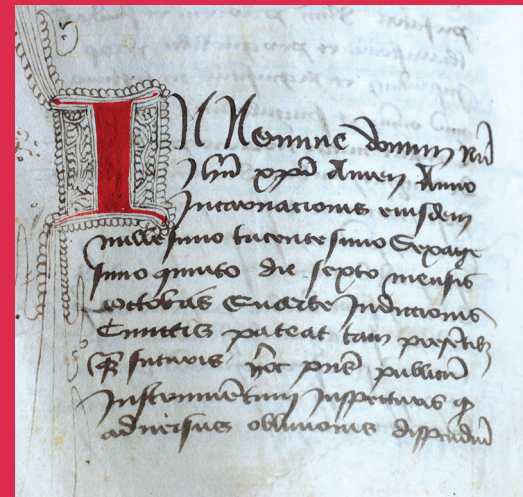 IN Nomine domini nri
Jhu xpi Amen Anno
Incarnacionis eiusdem
millesimo tricentesimo Sexage
simo quinto die sexto mensis
octobris Quarte Indicionis
Cunctis pateat tam presetibus
q futuris hoc pns publicu
Instrumentum inspecturis q
adversus oblivionis dispendiu